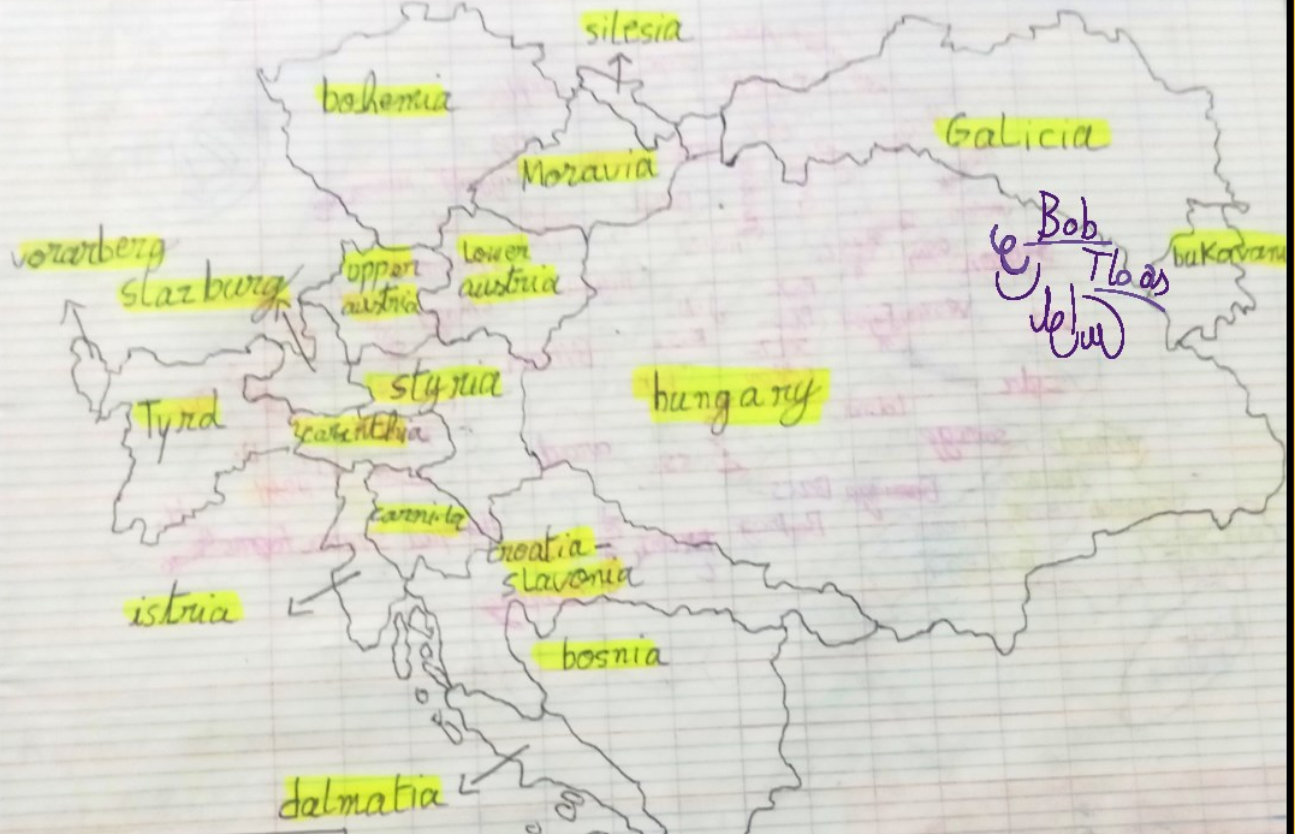 silesia
bohemia
Galicia
Moravia
Bob
Tloas
vorarberg
slazburg
uppen
austria
lower
austria
bukovanu
styria
hungary
Tyrol
carinthia
carnila
croatia-
slavonia
istria
bosnia
dalmatia